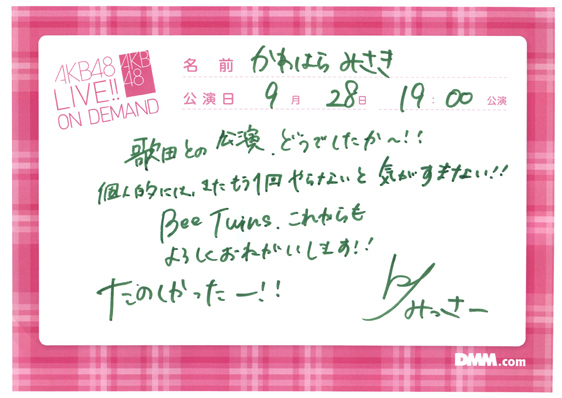 AKB48
LIVE!!
ON DEMAND
AKB
48
名前 かわはら みさき
公演日 9月 28日 19:00 公演
歌田との公演、どうでしたか〜!!
個人的には、またもう1回やらないと気がすまない!!
Bee Twins、これからも
よろしくおねがいします!!
たのしかったー!!
by みっさー
DMM.com